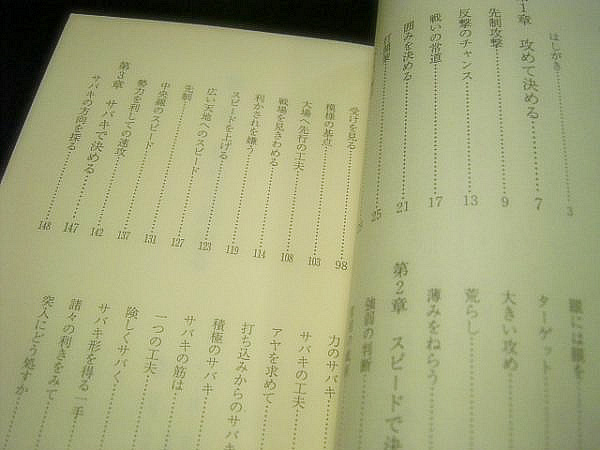 はしがき 3
第1章 攻めて決める 7
先制攻撃 9
反撃のチャンス 13
戦いの常道 17
囲みを決める 21
25
眼には眼を
ターゲット
大きい攻め
荒らし
薄みをねらう
第2章 スピードで決
強弱の判断
受けを見る
模様の基点 98
大場へ先行の工夫 103
戦場を見きわめる 108
利かされを嫌う 114
スピードを上げる 119
広い天地へのスピード 123
先制 127
中央線のスピード 131
勢力を利しての速攻 137
142
第3章 サバキで決める 147
サバキの方向を探る 148
力のサバキ
サバキの工夫
アヤを求めて
打ち込みからのサバキ
積極のサバキ
サバキの筋は
一つの工夫
険しくサバく
サバキ形を得る一手
諸々の利きをみて
突入にどう処すか